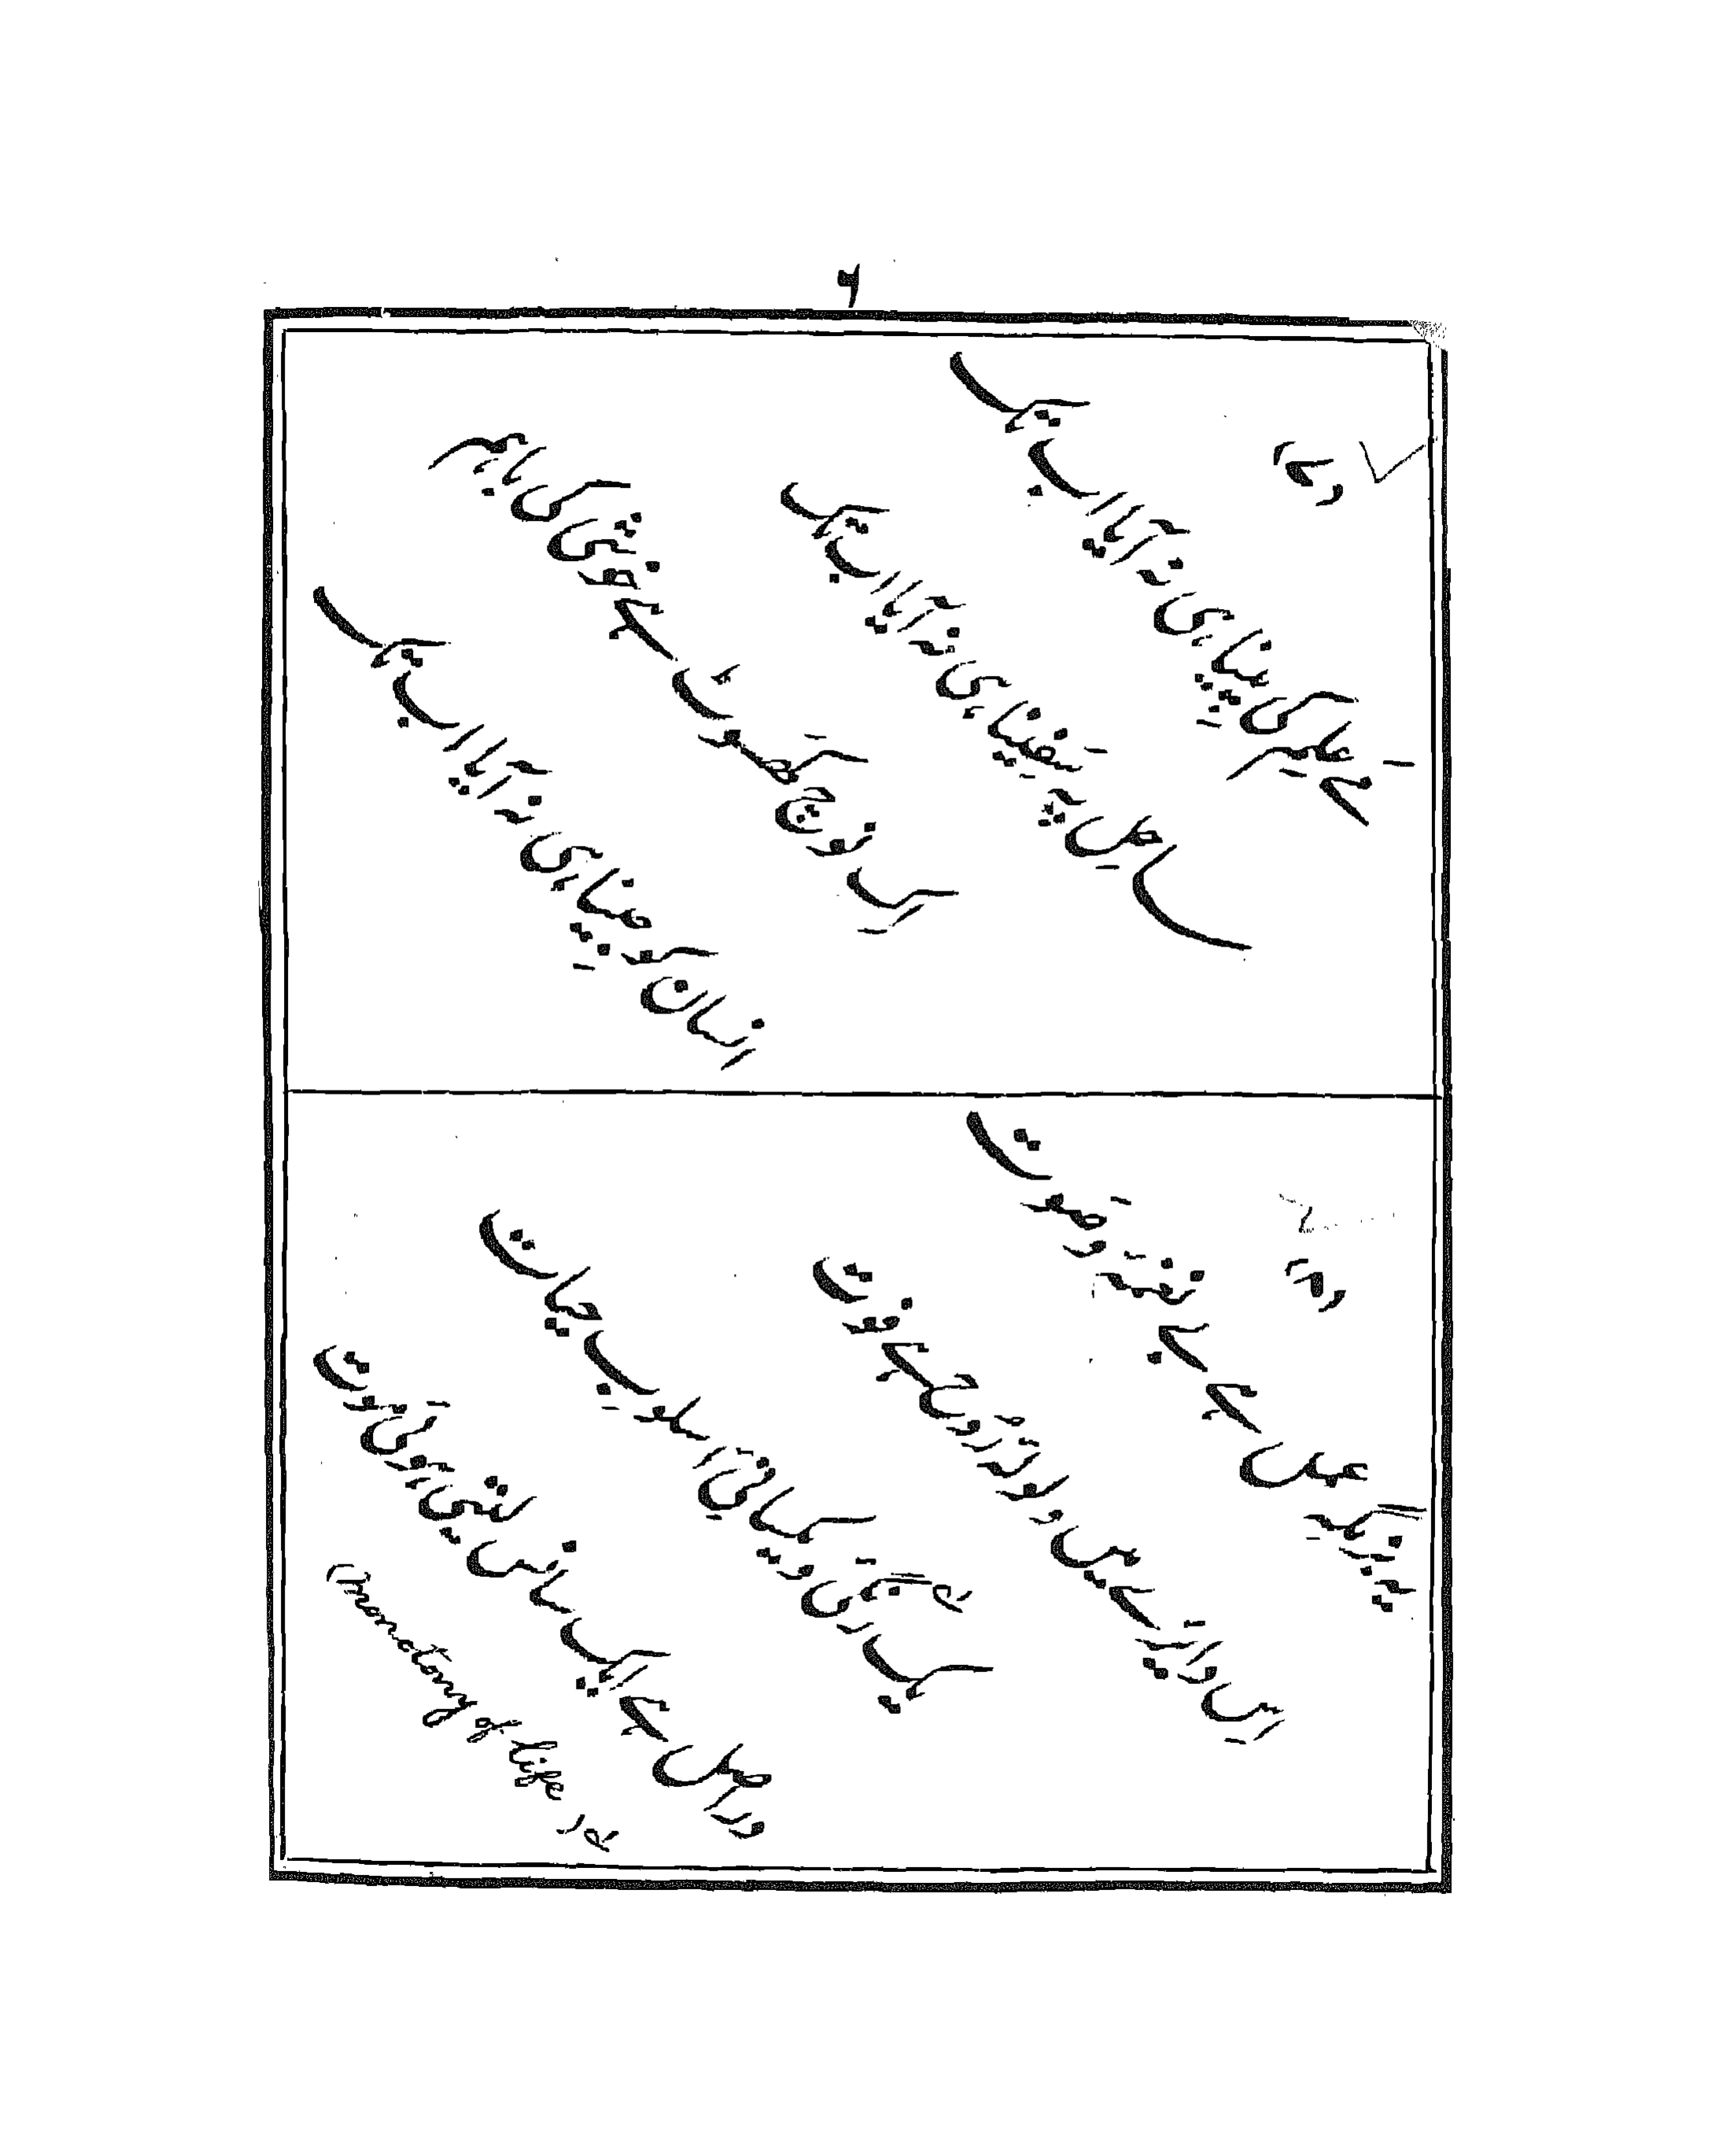 ۶
(۴)
مَے علم کی پینا ہی نہ آیا اب تک
ساحل پہ سفینا ہی نہ آیا اب تک
اِک نوچ کھسوٹ ہے خوشی کی باہم
انسان کو جینا ہی نہ آیا اب تک
(۵)
عمل ہے بے نغمہ و صَوت
اِس دائرے میں ولولۂ رُوح ہے فوت
یک رنگی و یکسانیِ اسلوبِ حیات
دراصل ہے ایک سانس لیتی ہوئی مَوت
(monotony of life)